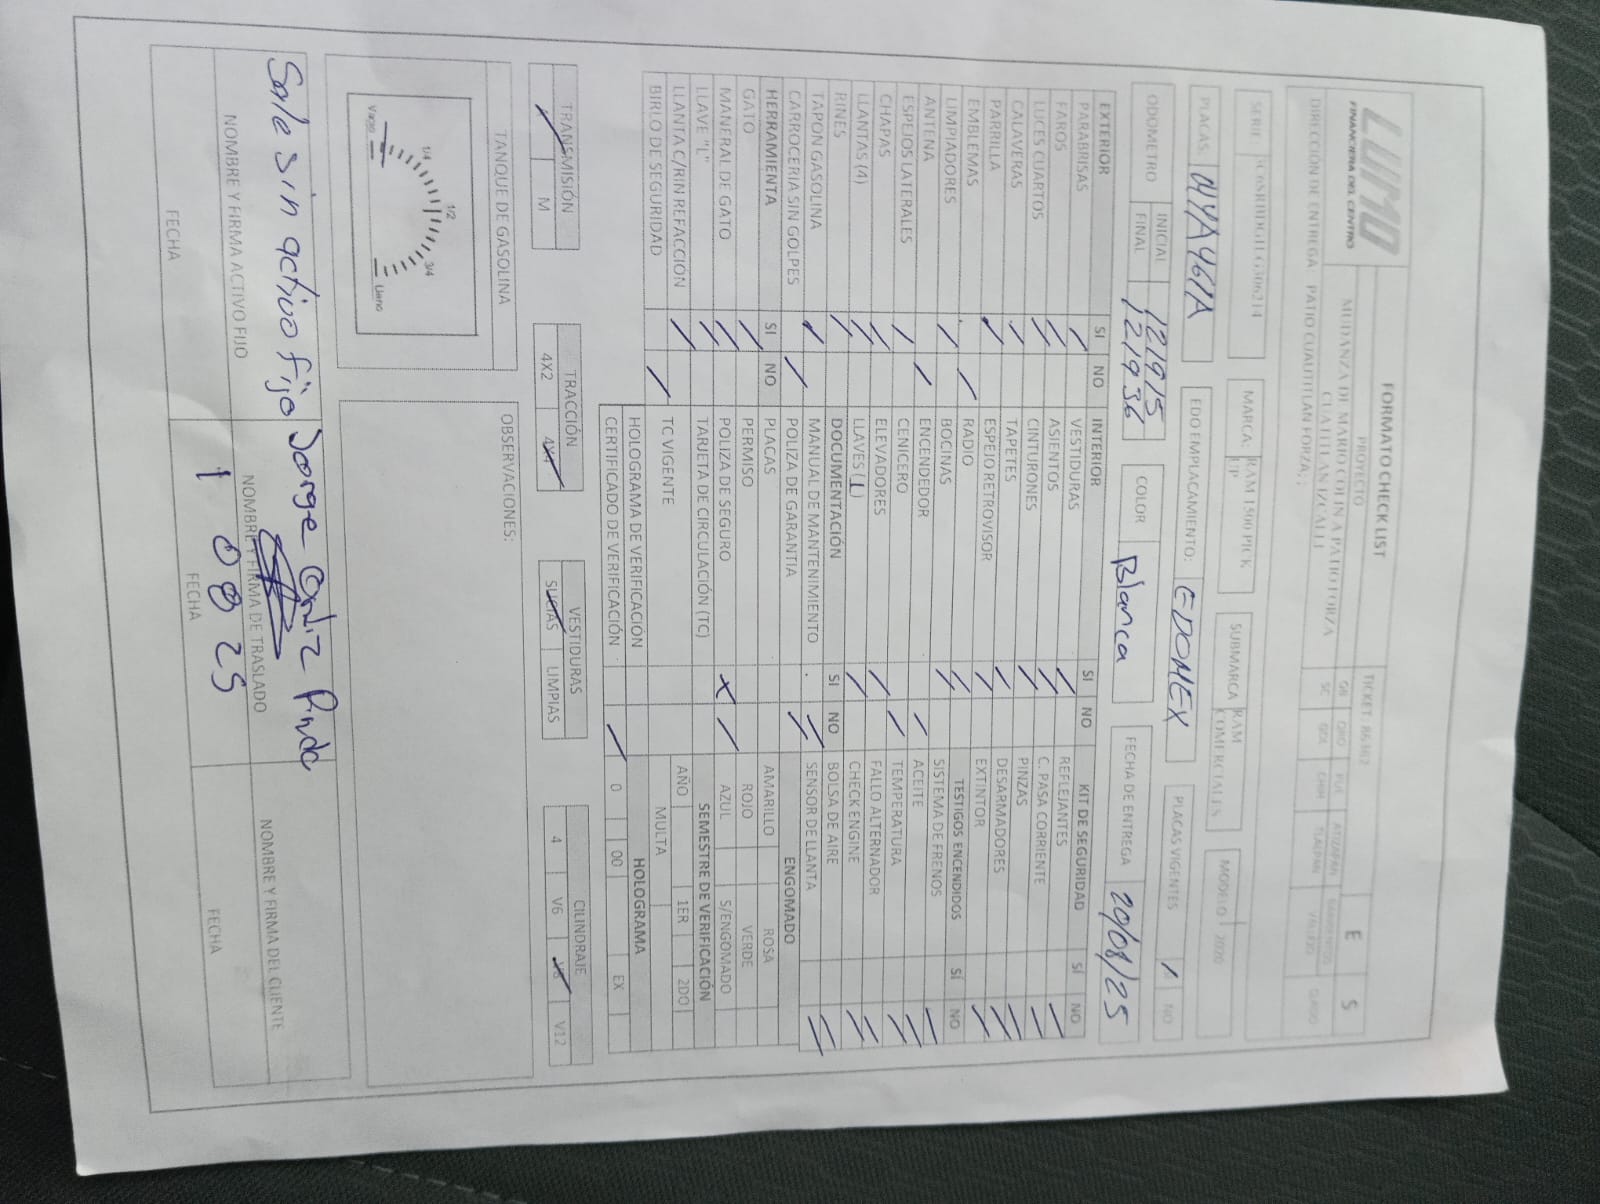 LUMO
FINANCIERA DEL CENTRO
FORMATO CHECK LIST
PROYECTO
MUDANZA DE MARIO COLIN A PATIO FORZA
CUATITLAN IZCALLI
TICKET: 86462
E
S
DIRECCIÓN DE ENTREGA PATIO CUAUTITLAN FORZA, ;
SERIE:
MARCA: RAM 1500 PICK UP
SUBMARCA RAM COMERCIALES
MODELO 2020
PLACAS:
EDO EMPLACAMIENTO: EDOMEX
PLACAS VIGENTES / NO
ODOMETRO
INICIAL 121915
FINAL 121936
COLOR Blanca
FECHA DE ENTREGA 20/08/25
EXTERIOR SI NO
PARABRISAS
FAROS
LUCES CUARTOS
CALAVERAS
PARRILLA
EMBLEMAS
LIMPIADORES
ANTENA
ESPEJOS LATERALES
CHAPAS
LLANTAS (4)
RINES
TAPON GASOLINA
CARROCERIA SIN GOLPES
HERRAMIENTA SI NO
GATO
MANERAL DE GATO
LLAVE "L"
LLANTA C/RIN REFACCIÓN
BIRLO DE SEGURIDAD
INTERIOR SI NO
VESTIDURAS
ASIENTOS
CINTURONES
TAPETES
ESPEJO RETROVISOR
RADIO
BOCINAS
ENCENDEDOR
CENICERO
ELEVADORES
LLAVES (1)
DOCUMENTACIÓN SI NO
MANUAL DE MANTENIMIENTO
POLIZA DE GARANTIA
PLACAS
PERMISO
POLIZA DE SEGURO X
TARJETA DE CIRCULACIÓN (TC)
TC VIGENTE
HOLOGRAMA DE VERIFICACIÓN
CERTIFICADO DE VERIFICACIÓN
KIT DE SEGURIDAD SÍ NO
REFLEJANTES
C. PASA CORRIENTE
PINZAS
DESARMADORES
EXTINTOR
TESTIGOS ENCENDIDOS SÍ NO
SISTEMA DE FRENOS
ACEITE
TEMPERATURA
FALLO ALTERNADOR
CHECK ENGINE
BOLSA DE AIRE
SENSOR DE LLANTA
ENGOMADO
AMARILLO ROSA
ROJO VERDE
AZUL S/ENGOMADO
SEMESTRE DE VERIFICACIÓN
AÑO 1ER 2DO
MULTA
HOLOGRAMA
0 00 EX
TRANSMISIÓN
M
TRACCIÓN
4X2 4X4
VESTIDURAS
SUCIAS LIMPIAS
CILINDRAJE
4 V6 V8 V12
TANQUE DE GASOLINA
Vacio 1/4 1/2 3/4 Lleno
OBSERVACIONES:
Sale sin activo fijo
Jorge Ortiz
NOMBRE Y FIRMA ACTIVO FIJO
NOMBRE Y FIRMA DE TRASLADO
NOMBRE Y FIRMA DEL CLIENTE
1 08 25
FECHA
FECHA
FECHA